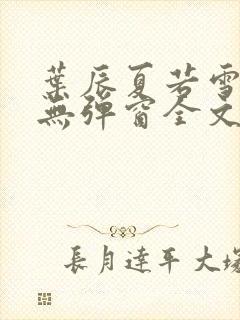 葉辰夏若雪
無彈窗全文
長月達平大塚